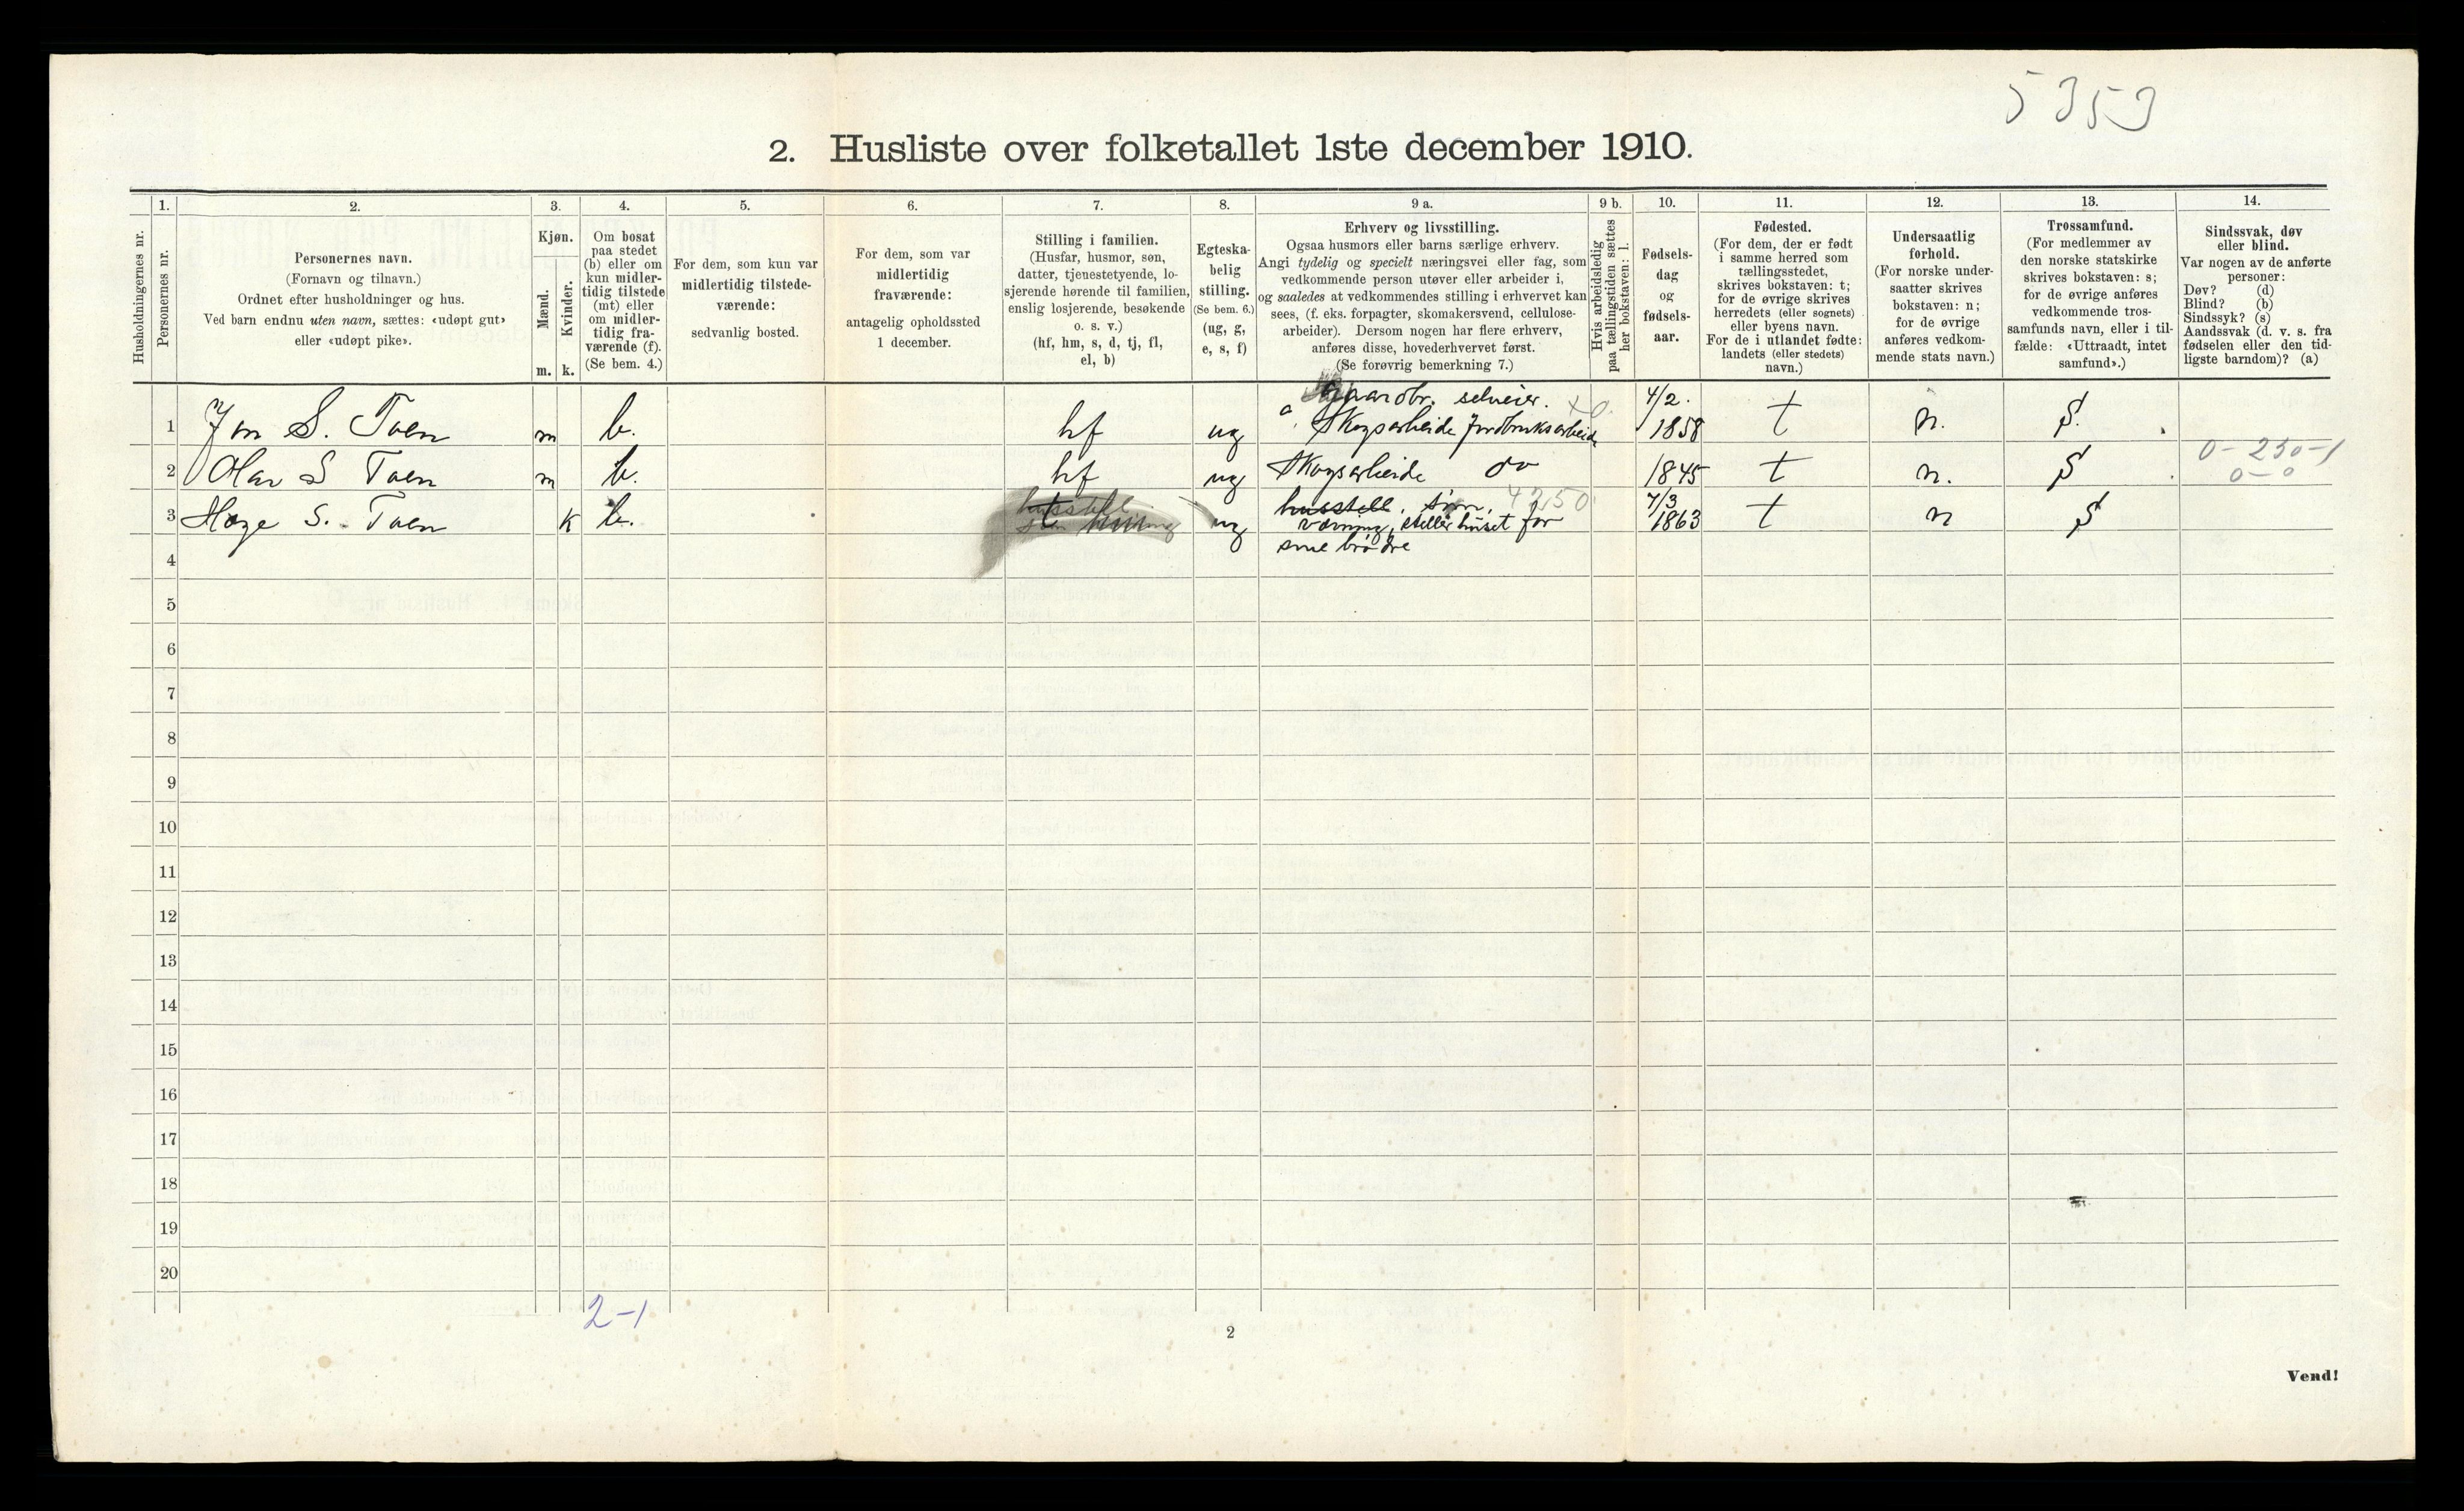 5353
2. Husliste over folketallet 1ste december 1910.
Husholdningernes nr.
1.
Personernes nr.
2.
Personernes navn.
(Fornavn og tilnavn.)
Ordnet efter husholdninger og hus.
Ved barn endnu uten navn, sættes: «udøpt gut»
eller «udøpt pike».
3.
Kjøn.
Mænd.
Kvinder.
m. k.
4.
Om bosat
paa stedet
(b) eller om
kun midler-
tidig tilstede
(mt) eller
om midler-
tidig fra-
værende (f).
(Se bem. 4.)
5.
For dem, som kun var
midlertidig tilstede-
værende:
sedvanlig bosted.
6.
For dem, som var
midlertidig
fraværende:
antagelig opholdssted
1 december.
7.
Stilling i familien.
(Husfar, husmor, søn,
datter, tjenestetyende, lo-
sjerende hørende til familien,
enslig losjerende, besøkende
o. s. v.)
(hf, hm, s, d, tj, fl,
el, b)
8.
Egteska-
belig
stilling.
(Se bem. 6.)
(ug, g,
e, s, f)
9 a.
Erhverv og livsstilling.
Ogsaa husmors eller barns særlige erhverv.
Angi tydelig og specielt næringsvei eller fag, som
vedkommende person utøver eller arbeider i,
og saaledes at vedkommendes stilling i erhvervet kan
sees, (f. eks. forpagter, skomakersvend, cellulose-
arbeider). Dersom nogen har flere erhverv,
anføres disse, hovederhvervet først.
(Se forøvrig bemerkning 7.)
9 b.
Hvis arbeidsledig
paa tællingstiden sættes
her bokstaven: l.
10.
Fødsels-
dag
og
fødsels-
aar.
11.
Fødested.
(For dem, der er født
i samme herred som
tællingsstedet,
skrives bokstaven: t;
for de øvrige skrives
herredets (eller sognets)
eller byens navn.
For de i utlandet fødte:
landets (eller stedets)
navn.)
12.
Undersaatlig
forhold.
(For norske under-
saatter skrives
bokstaven: n;
for de øvrige
anføres vedkom-
mende stats navn.)
13.
Trossamfund.
(For medlemmer av
den norske statskirke
skrives bokstaven: s;
for de øvrige anføres
vedkommende tros-
samfunds navn, eller i til-
fælde: «Uttraadt, intet
samfund».)
14.
Sindssvak, døv
eller blind.
Var nogen av de anførte
personer:
Døv? (d)
Blind? (b)
Sindssyk? (s)
Aandssvak (d. v. s. fra
fødselen eller den tid-
ligste barndom)? (a)
gaardbr. selveier. x0. 4/2.
1 Jon S. Toen m b. hf ug Skogsarbeide Jordbruksarbeide 1858 t n. S.
0-230-1
2 Olav S Toen m b. hf ug Skogsarbeide do 1845 t n. S 0-0
husstell husstell. 4250 7/3
3 S. Toen k b. ug væving, steller huset for 1863 t n S
4 sine brødre
5
6
7
8
9
10
11
12
13
14
15
16
17
18
19
20
2-1
2
Vend!